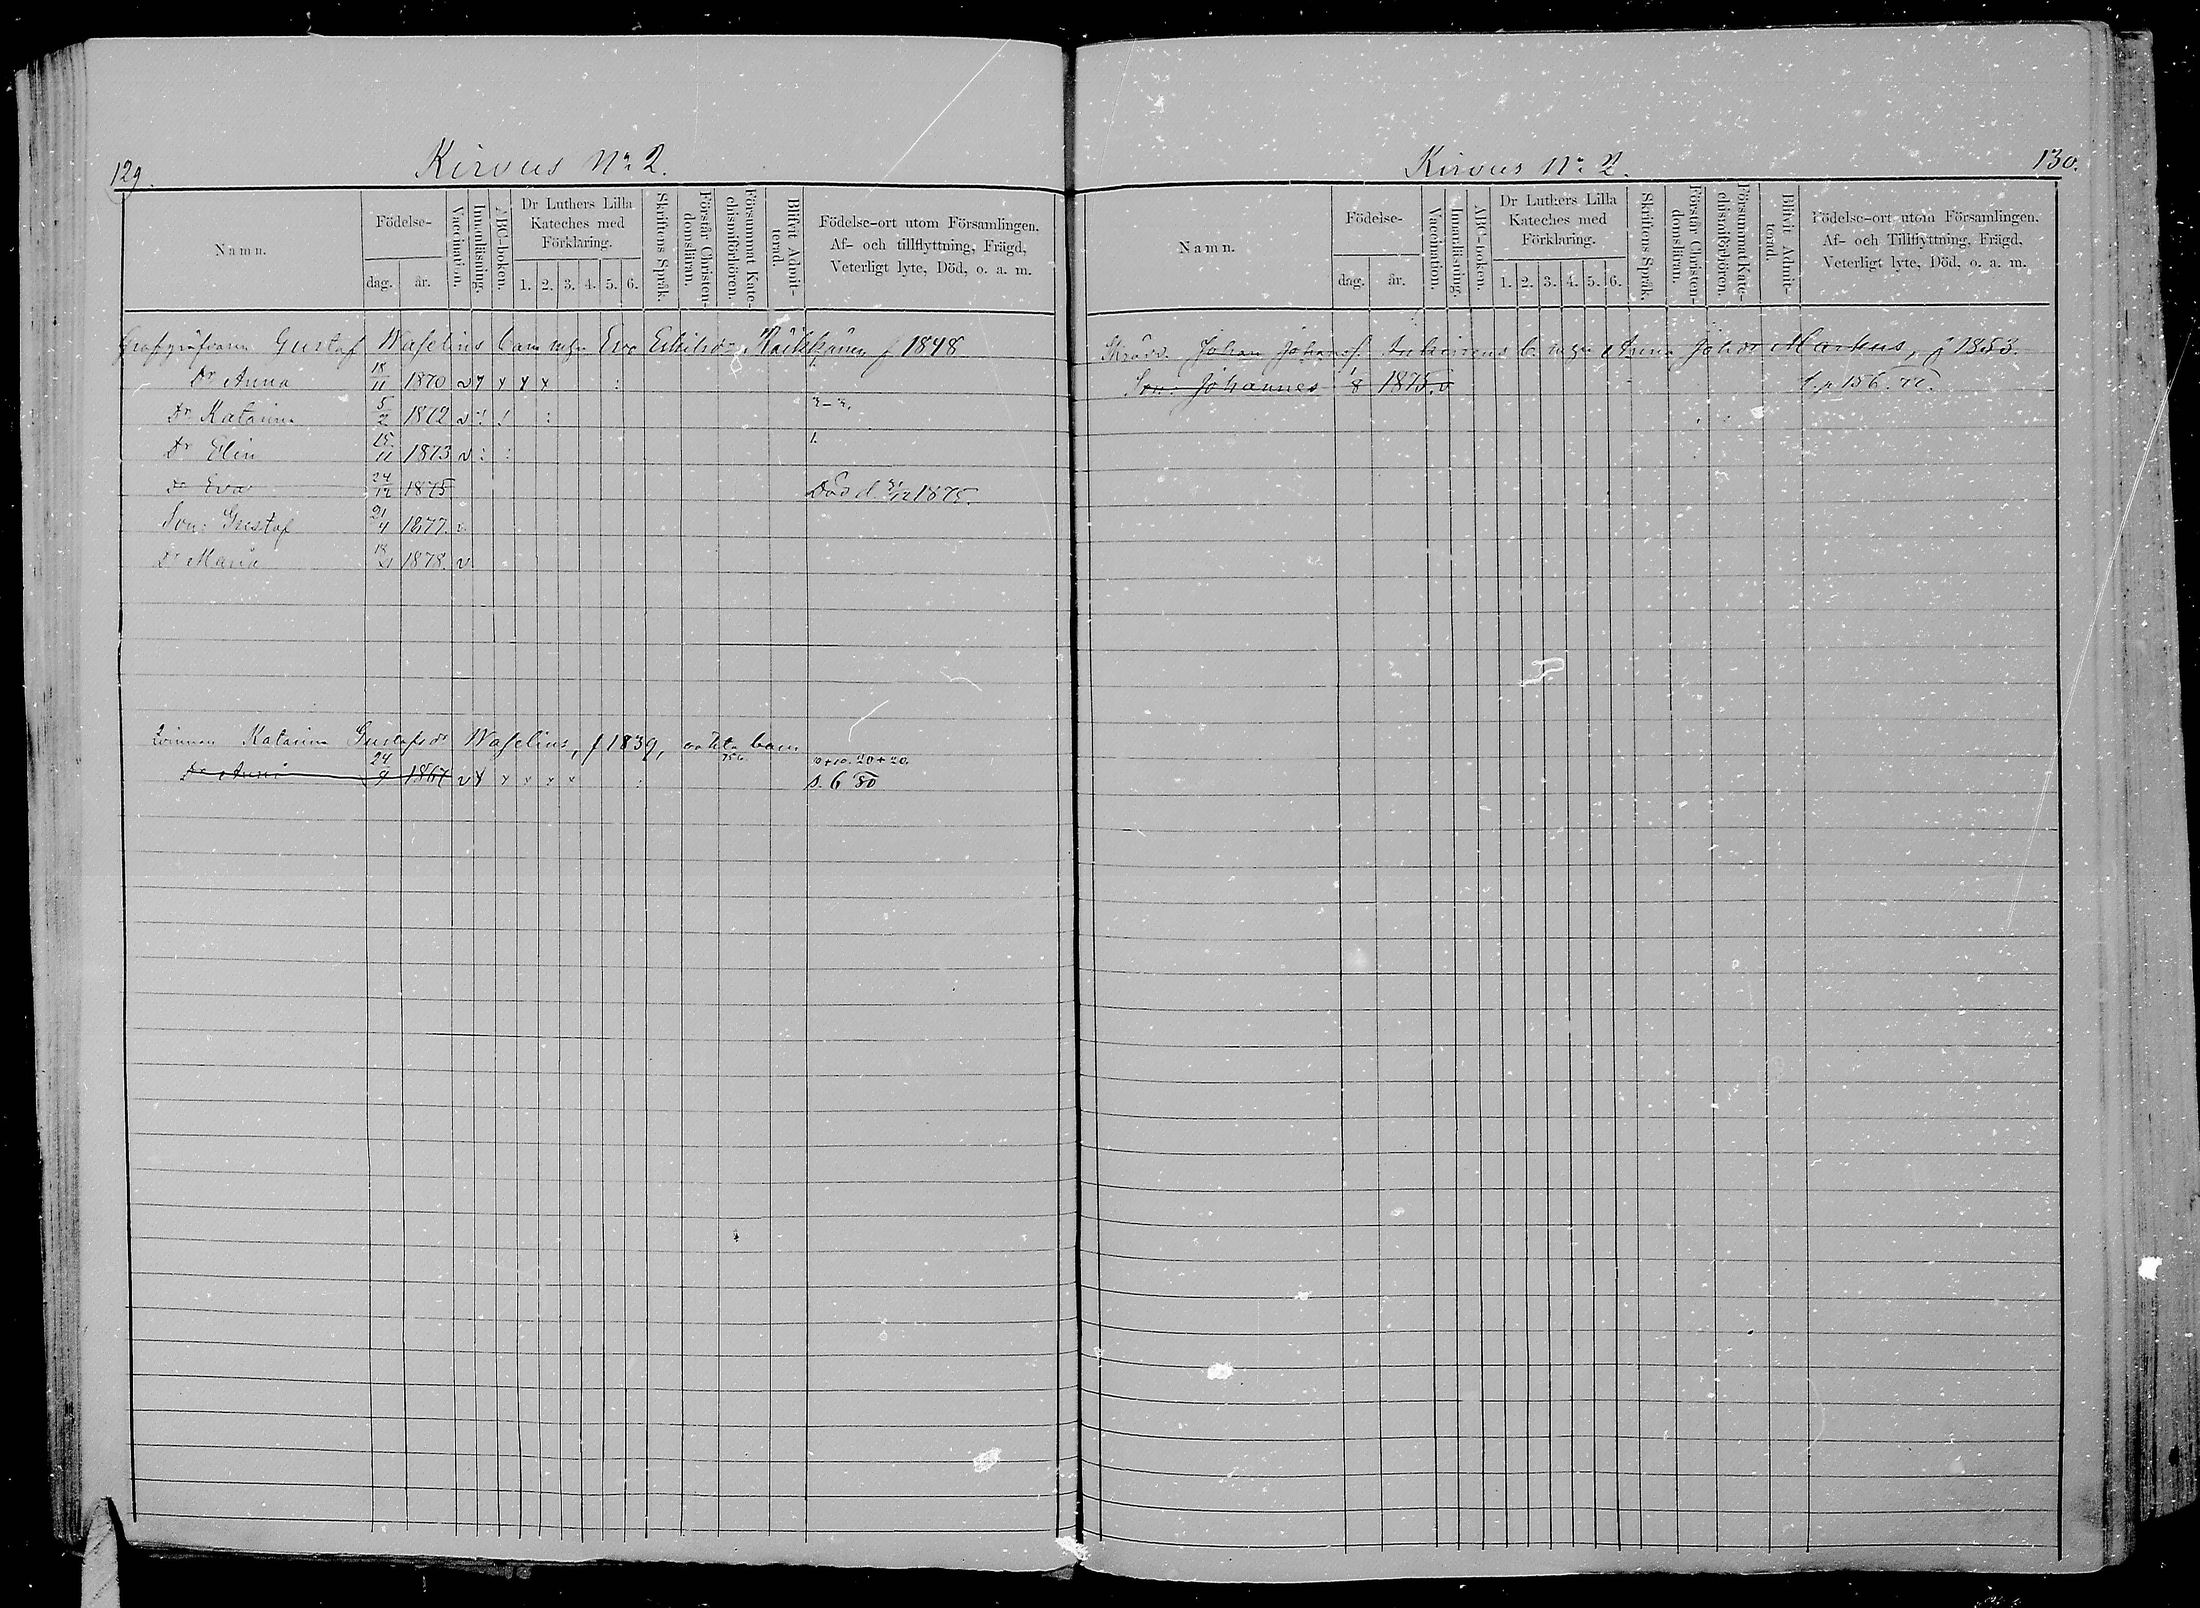 129.
Kirvus No 2.
Namn.
Födelse-
dag.
år.
Vaccination.
Innanläsning.
ABC-boken.
Dr Luthers Lilla
Kateches med
Förklaring.
1. 2. 3. 4. 5. 6.
Skriftens Språk.
Förstår Christen-
domsläran.
Försummat Kate-
chismiförhören.
Blifvit Admit-
terad.
Födelse-ort utom Församlingen,
Af- och tillflyttning, Frägd,
Veterligt lyte, Död, o. a. m.
Gustaf Waselius barn m. h. Eva Eskilsdr f 1848
Dr Anna 18/11 1870 v x x x x
Dr Katarina 5/2 1872 v
Dr Elin 15/11 1873 v
Dr Eva 24/12 1875 Död d. 31/12 1875.
Son: Gustaf 21/4 1877. v
Dr Maria 18 1878. v
Qvinnan Katarina Gustafsdr Waselius, f 1839, oäkta barn
10+10. 20+20.
Dr Anna 24 1867 v x x x x x s. 6 80
130.
Kirvus No 2.
Namn.
Födelse-
dag.
år.
Vaccination.
Innanläsning.
ABC-boken.
Dr Luthers Lilla
Kateches med
Förklaring.
1. 2. 3. 4. 5. 6.
Skriftens Språk.
Förstår Christen-
domsläran.
Försummat Kate-
chismiförhören.
Blifvit Admit-
terad.
Födelse-ort utom Församlingen,
Af- och Tillflyttning, Frägd,
Veterligt lyte, Död, o. a. m.
Johan Johanss. b. m. h. Anna Johsdr Markus, f 1853.
Son: Johannes 1/8 1875. v t. p 156.